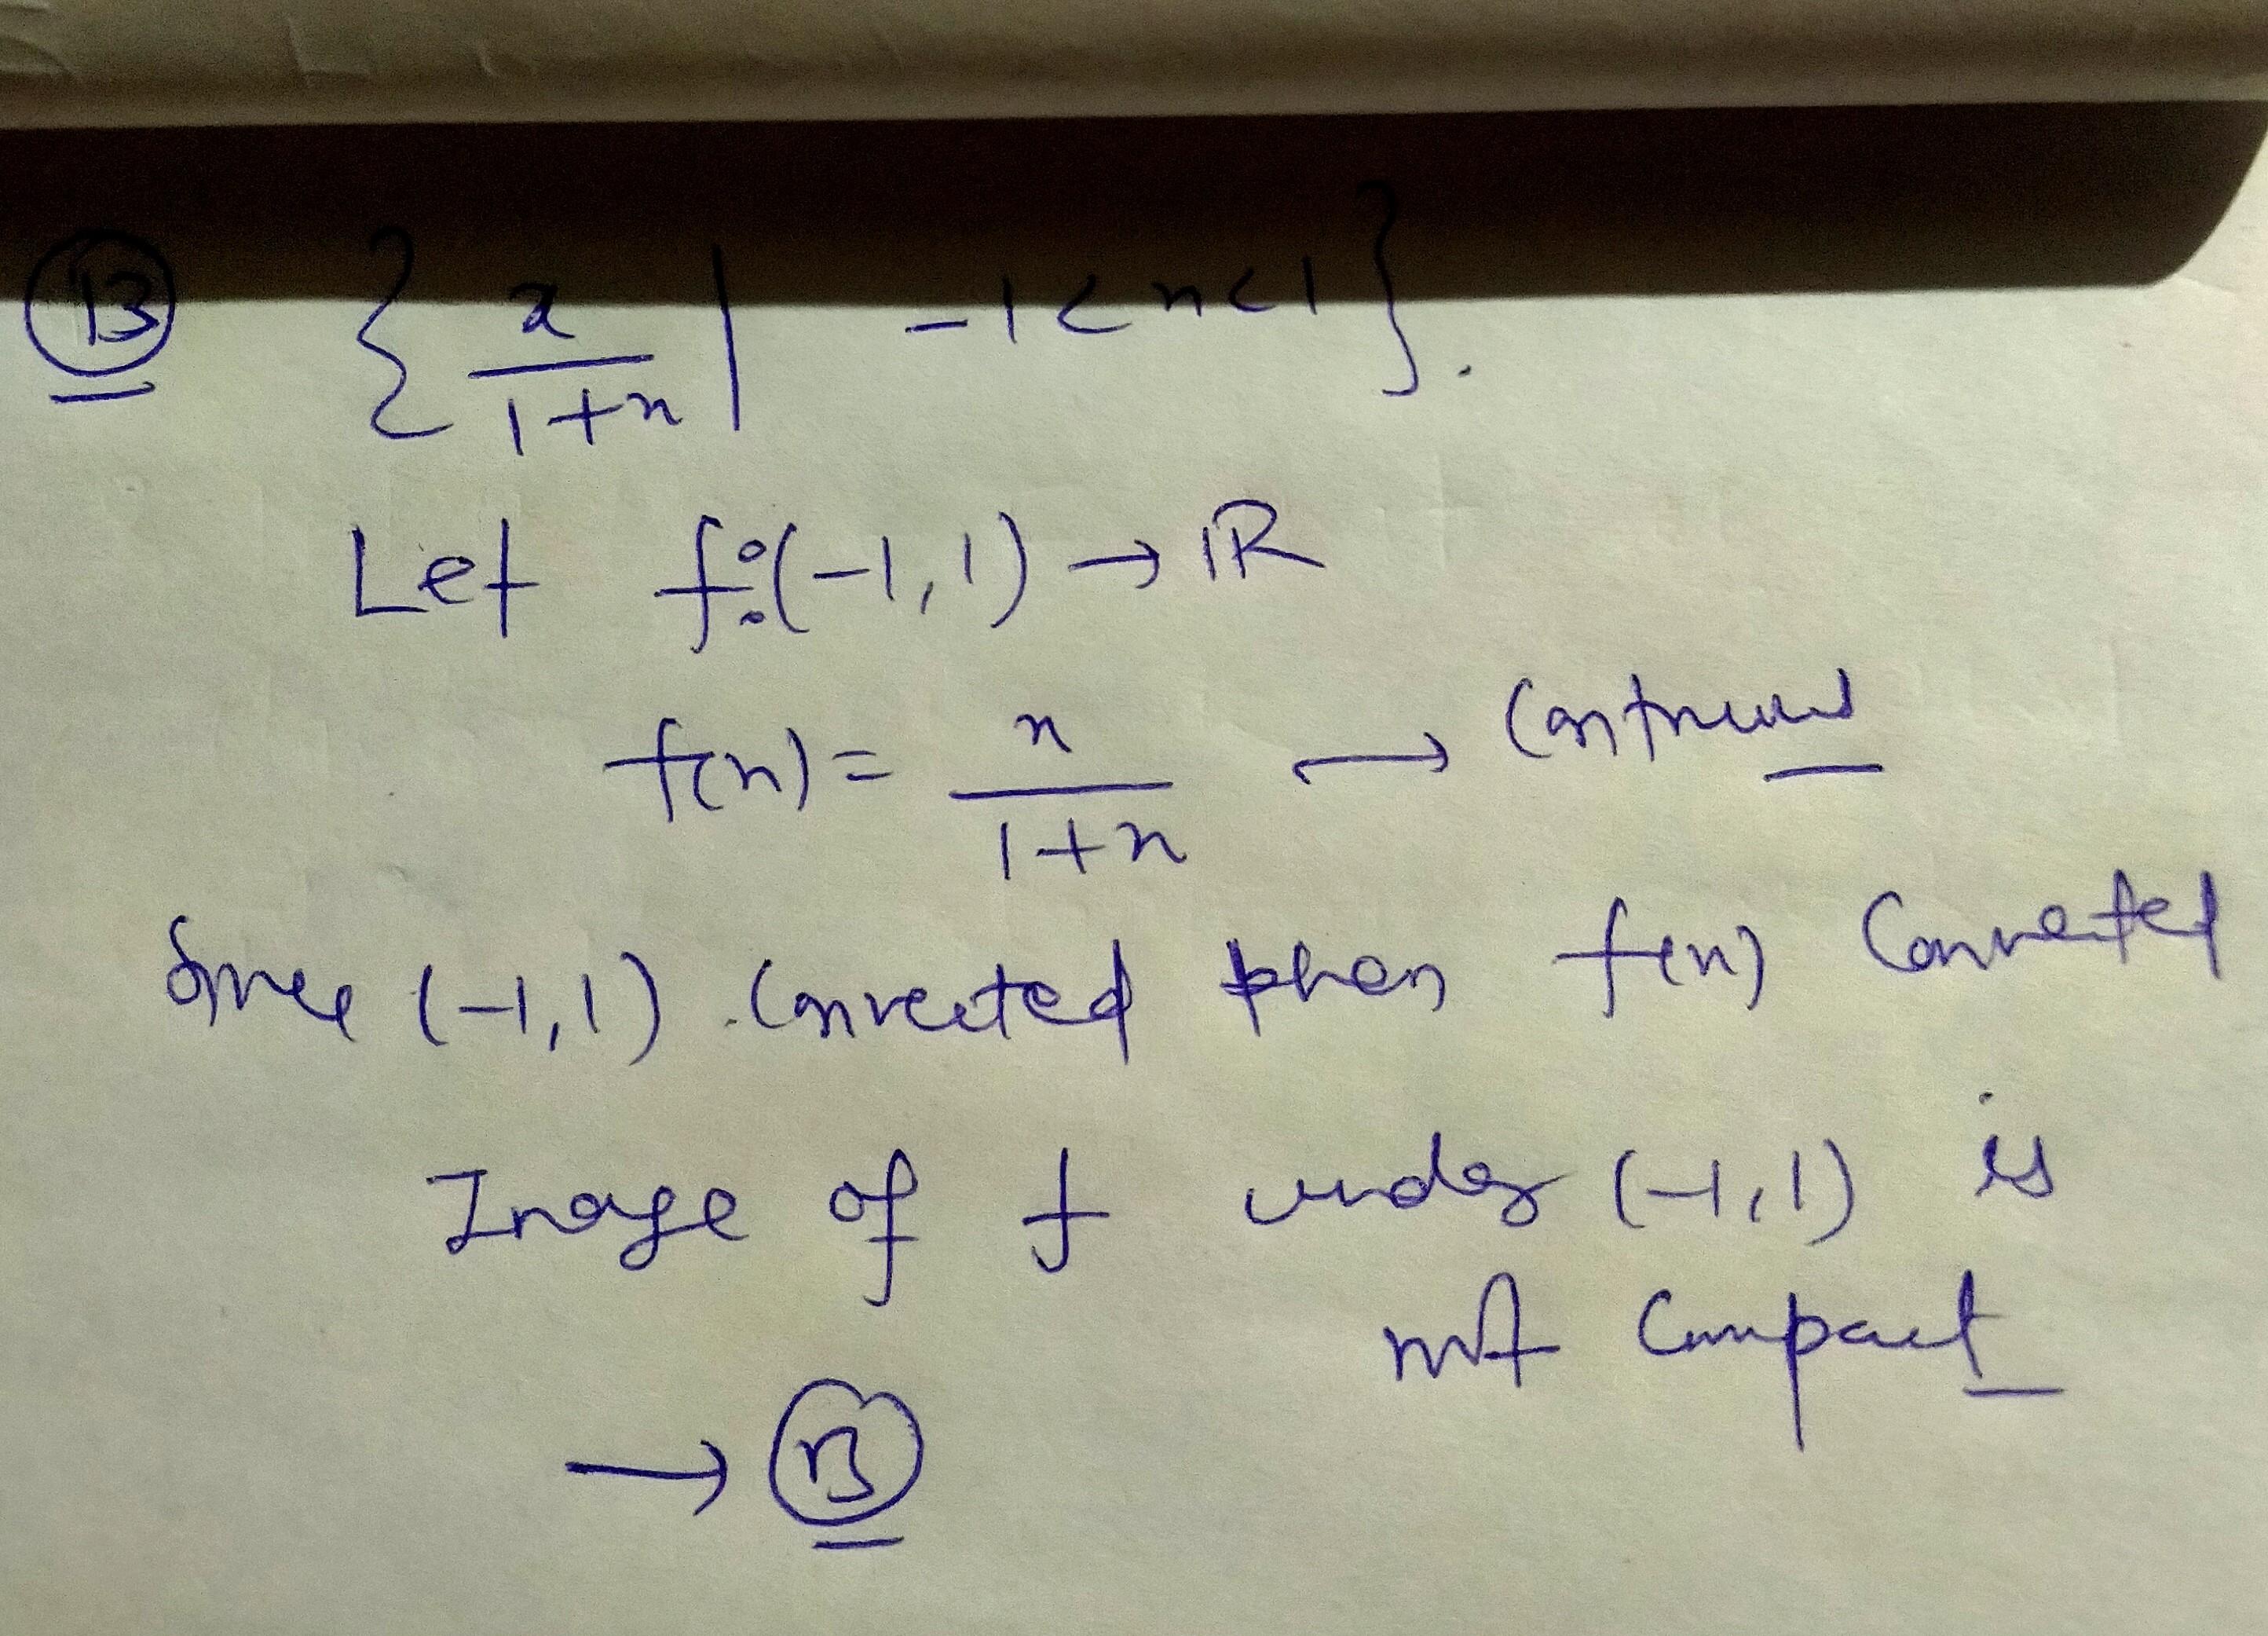 13 { x / 1+x | -1<x<1 }.
Let f:(-1,1) → IR
f(x) = x / 1+x → Continuous
Since (-1,1) connected then f(x) Connected
Image of f under (-1,1) is
not Compact
→ B